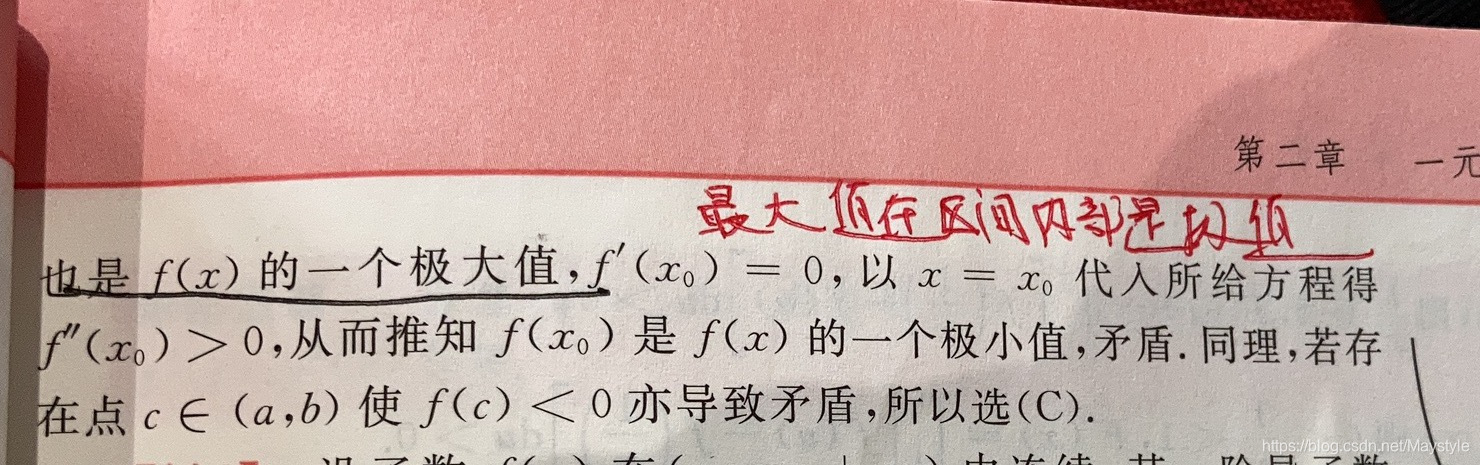 第二章 一元
最大值在区间内部是极值
也是 f(x) 的一个极大值,f′(x₀) = 0,以 x = x₀ 代入所给方程得
f″(x₀) > 0,从而推知 f(x₀) 是 f(x) 的一个极小值,矛盾.同理,若存
在点 c ∈ (a,b) 使 f(c) < 0 亦导致矛盾,所以选(C).
https://blog.csdn.net/Maystyle